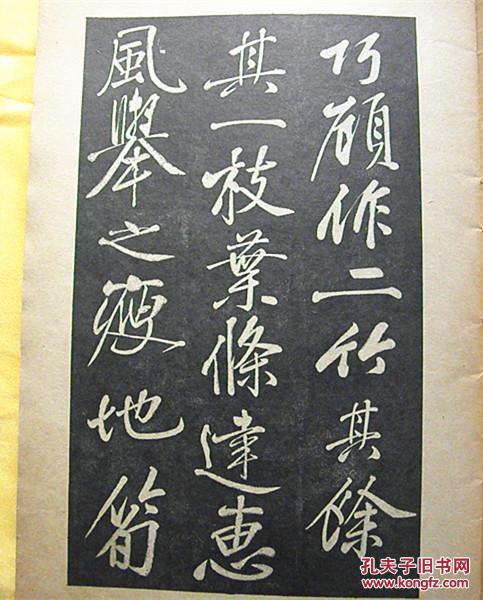 巧顧作二竹其餘
其一枝葉條達惠
風舉之瘦地筍
孔夫子旧书网
kongfz.com